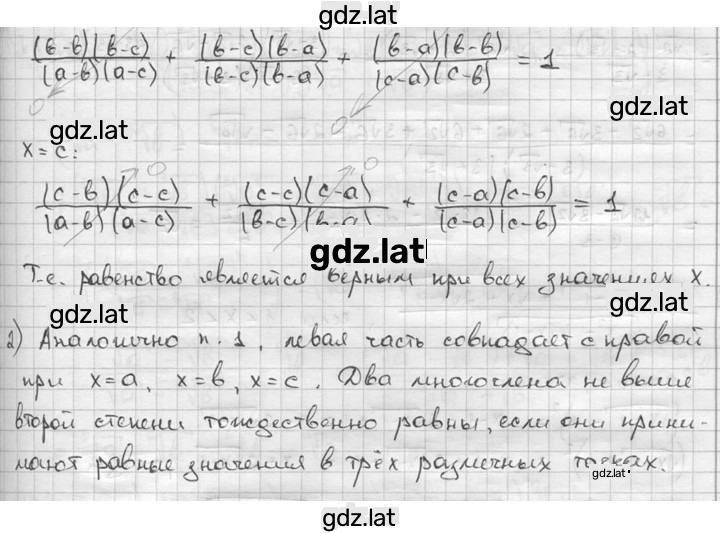 gdz.lat
(в-в)(в-с)/(а-в)(а-с) + (в-с)(в-а)/(в-с)(в-а) + (в-а)(в-в)/(с-а)(с-в) = 1
0 0
gdz.lat
gdz.lat
x=c:
0 0
(c-в)(c-c)/(а-в)(а-с) + (c-c)(c-а)/(в-с)(в-а) + (c-а)(c-в)/(c-а)(c-в) = 1
gdz.lat
Т.е. равенство является верным при всех значениях x.
gdz.lat
gdz.lat
2) Аналогично п. 1, левая часть совпадает с правой
при x=а, x=в, x=с. Два многочлена не выше
второй степени тождественно равны, если они прини-
мают равные значения в трёх различных точках.
gdz.lat
gdz.lat